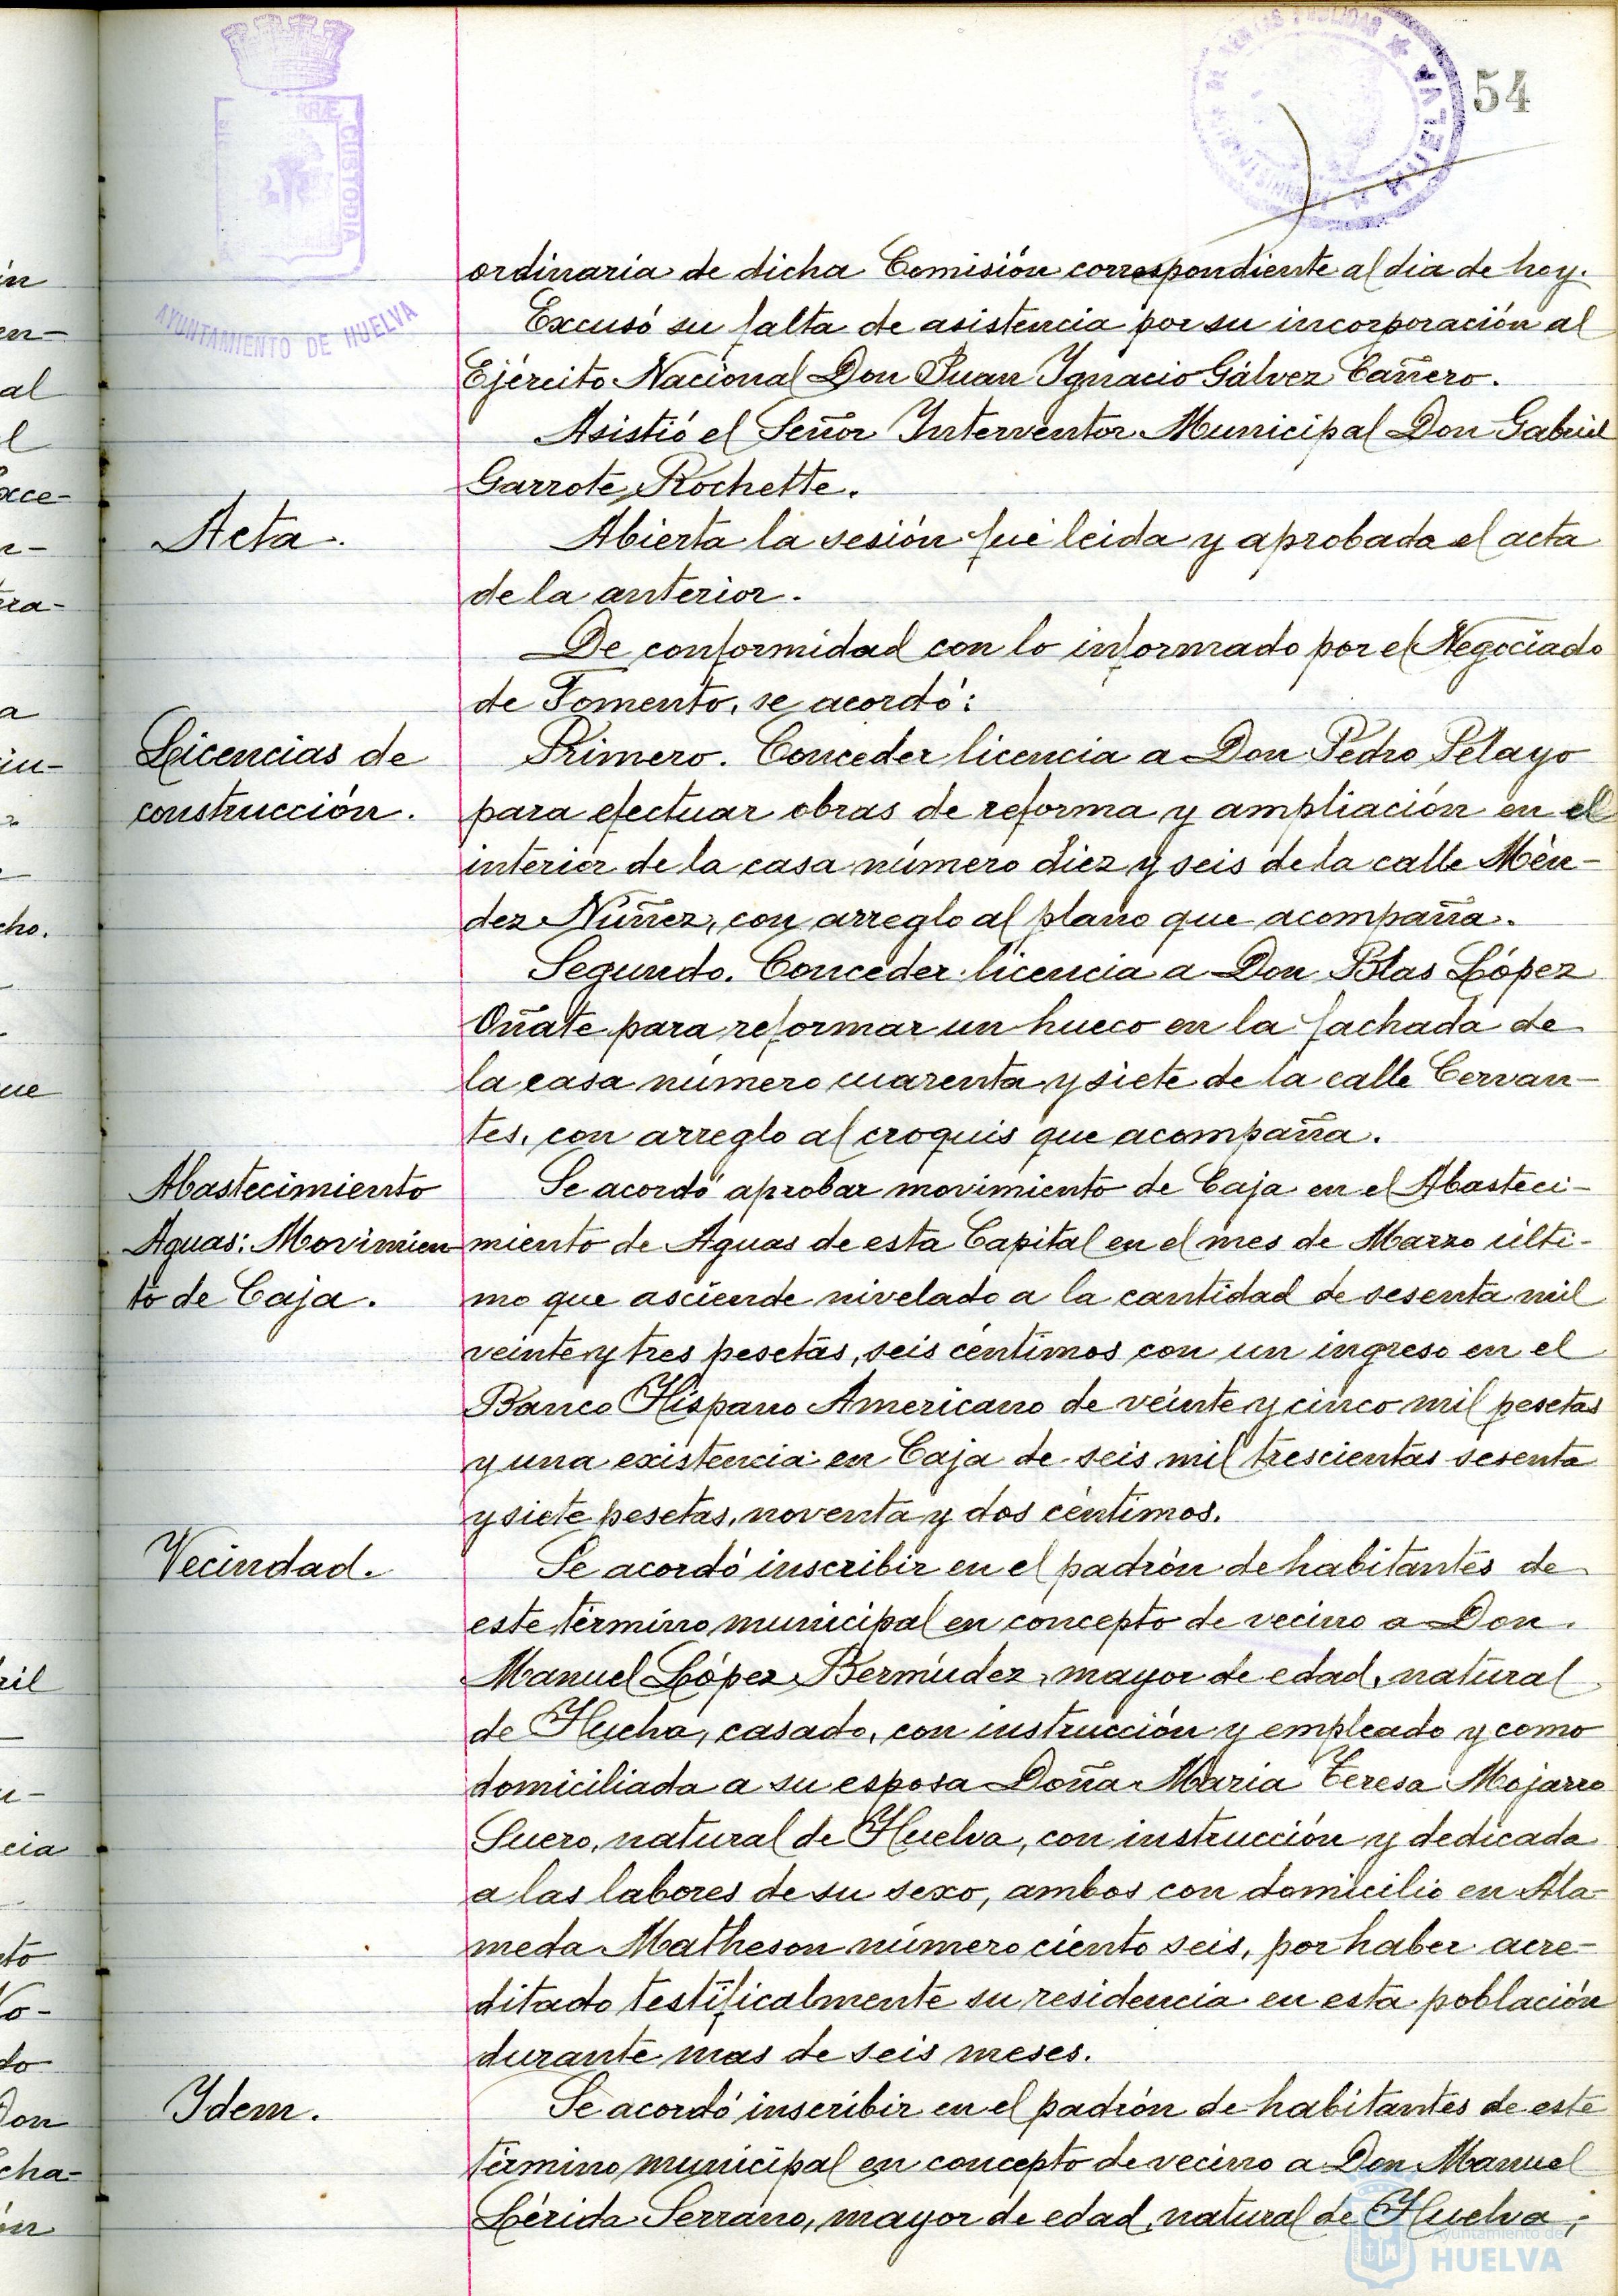 54
AYUNTAMIENTO DE HUELVA
CUSTODIA
HUELVA
ordinaria de dicha Comisión correspondiente al dia de hoy.
Excusó su falta de asistencia por su incorporación al
Ejército Nacional Don Juan Ygnacio Gálvez Cañero.
Asistió el Señor Ynterventor Municipal Don Gabriel
Garrote Rochette.
Acta.
Abierta la sesión fué leida y aprobada el acta
de la anterior.
De conformidad con lo informado por el Negociado
de Fomento, se acordó:
Licencias de
construcción.
Primero. Conceder licencia a Don Pedro Pelayo
para efectuar obras de reforma y ampliación en el
interior de la casa número diez y seis de la calle Mén-
dez Núñez, con arreglo al plano que acompaña.
Segundo. Conceder licencia a Don Blas López
Oñate para reformar un hueco en la fachada de
la casa número cuarenta y siete de la calle Cervan-
tes, con arreglo al croquis que acompaña.
Abastecimiento
Aguas: Movimien
to de Caja.
Se acordó aprobar movimiento de Caja en el Abasteci-
miento de Aguas de esta Capital en el mes de Marzo últi-
mo que asciende nivelado a la cantidad de sesenta mil
veinte y tres pesetas, seis céntimos con un ingreso en el
Banco Hispano Americano de veinte y cinco mil pesetas
y una existencia en Caja de seis mil trescientas sesenta
y siete pesetas, noventa y dos céntimos.
Vecindad.
Se acordó inscribir en el padrón de habitantes de
este término municipal en concepto de vecino a Don
Manuel López Bermúdez, mayor de edad, natural
de Huelva, casado, con instrucción y empleado y como
domiciliada a su esposa Doña Maria Teresa Mojarro
Suero, natural de Huelva, con instrucción y dedicada
a las labores de su sexo, ambos con domicilio en Ala-
meda Matheson número ciento seis, por haber acre-
ditado testificalmente su residencia en esta población
durante mas de seis meses.
Ydem.
Se acordó inscribir en el padrón de habitantes de este
término municipal en concepto de vecino a Don Manuel
Lérida Serrano, mayor de edad, natural de Huelva,
Ayuntamiento de
HUELVA